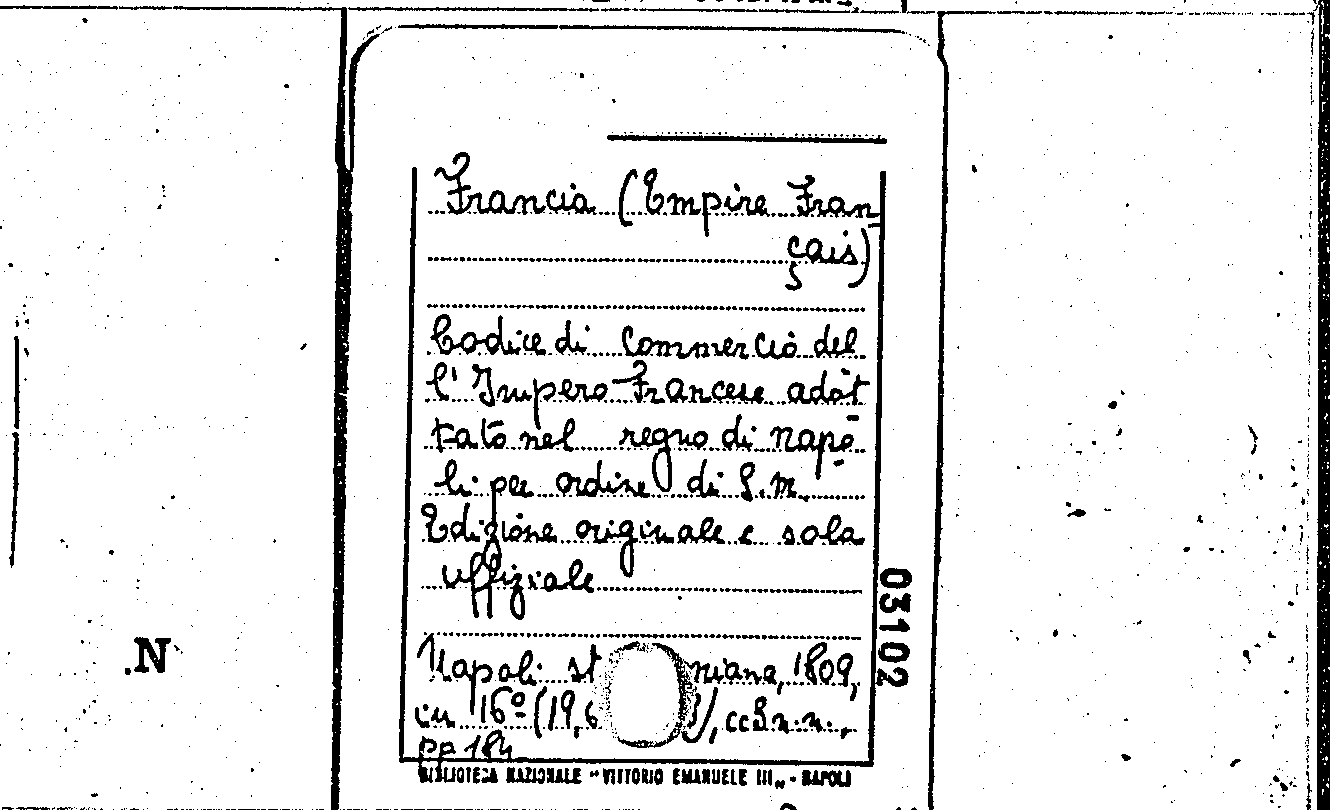 Francia (Empire Fran
çais)
Codice di Commercio del
l'Impero Francese adot
tato nel regno di Napo
li per ordine di S.M.
Edizione originale e sola
uffiziale
Napoli st niana, 1809,
in 16º (19,6 ), cc 8 n.n.,
pp 184
BIBLIOTECA NAZIONALE "VITTORIO EMANUELE III" - NAPOLI
03102
N.